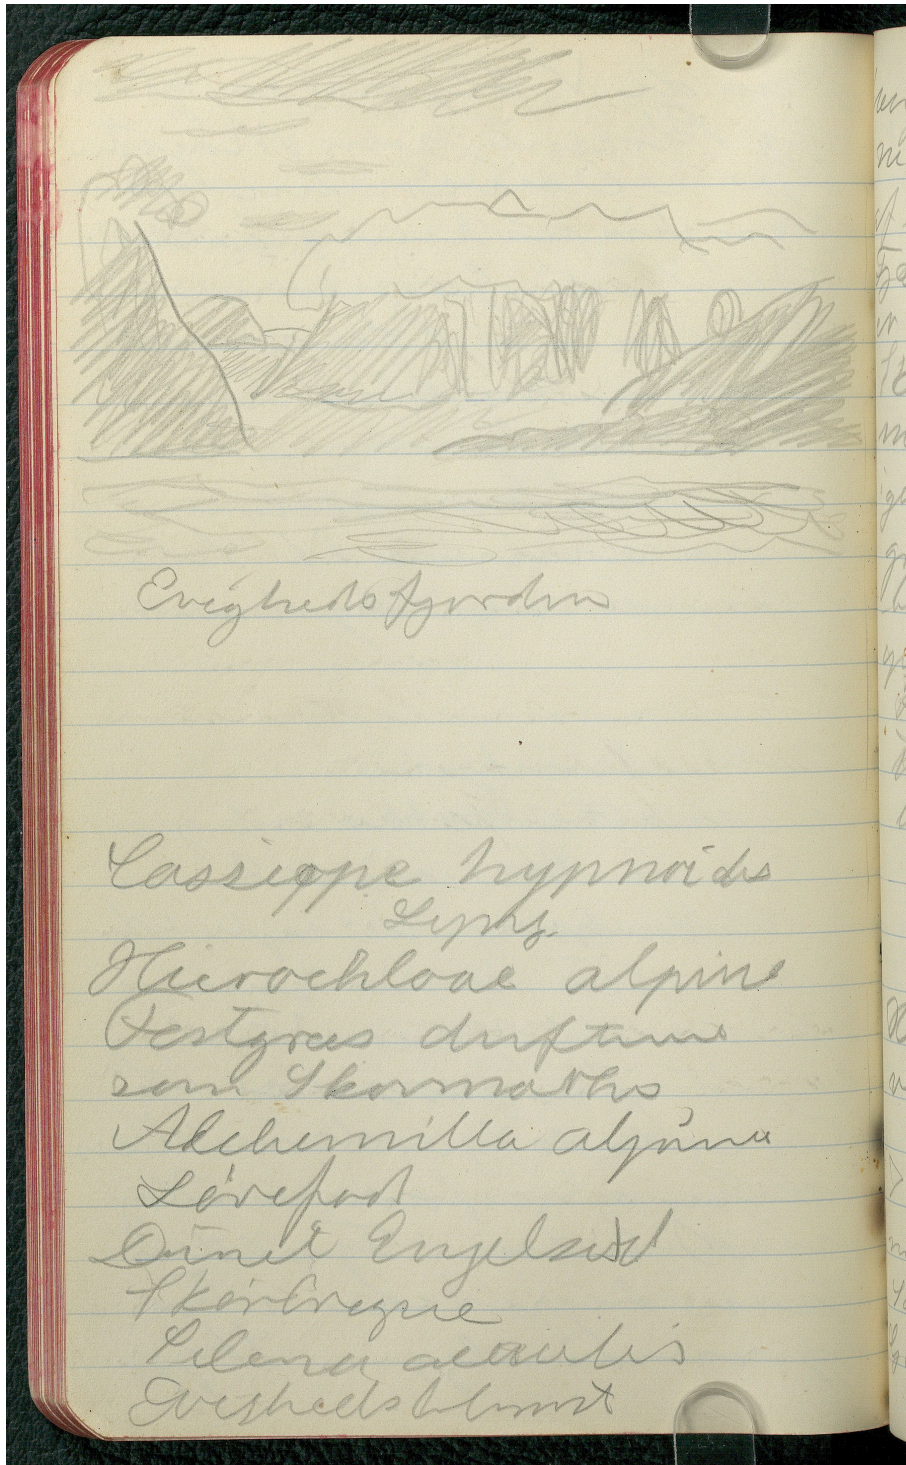 Evighedsfjorden
Cassiope hypnoides
Hierochloae alpine
Festgræs duftende
som Skovmærke
Alchemilla alpina
Løvefod
Dunet Engelsød
Skørbregne
Silena acaulis
Evighedsblomst